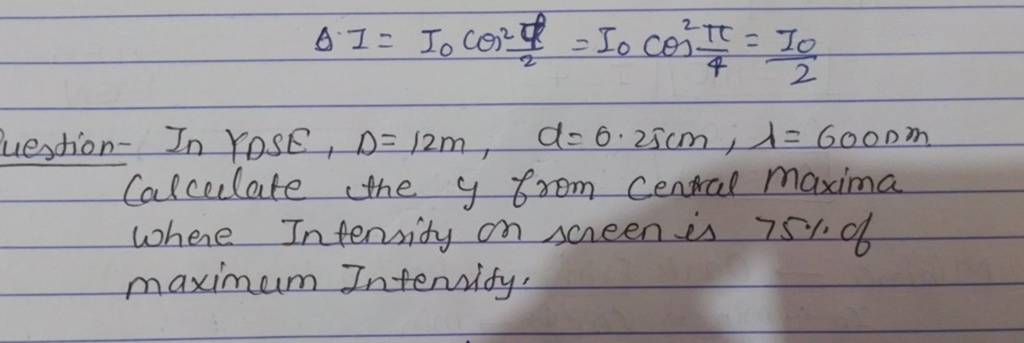 ∴ I = I₀ cos² φ/2 = I₀ cos² π/4 = I₀/2
Question- In YDSE, D= 12m, d= 0.25cm, λ= 600nm
Calculate the y from Central Maxima
where Intensity on screen is 75% of
maximum Intensity.